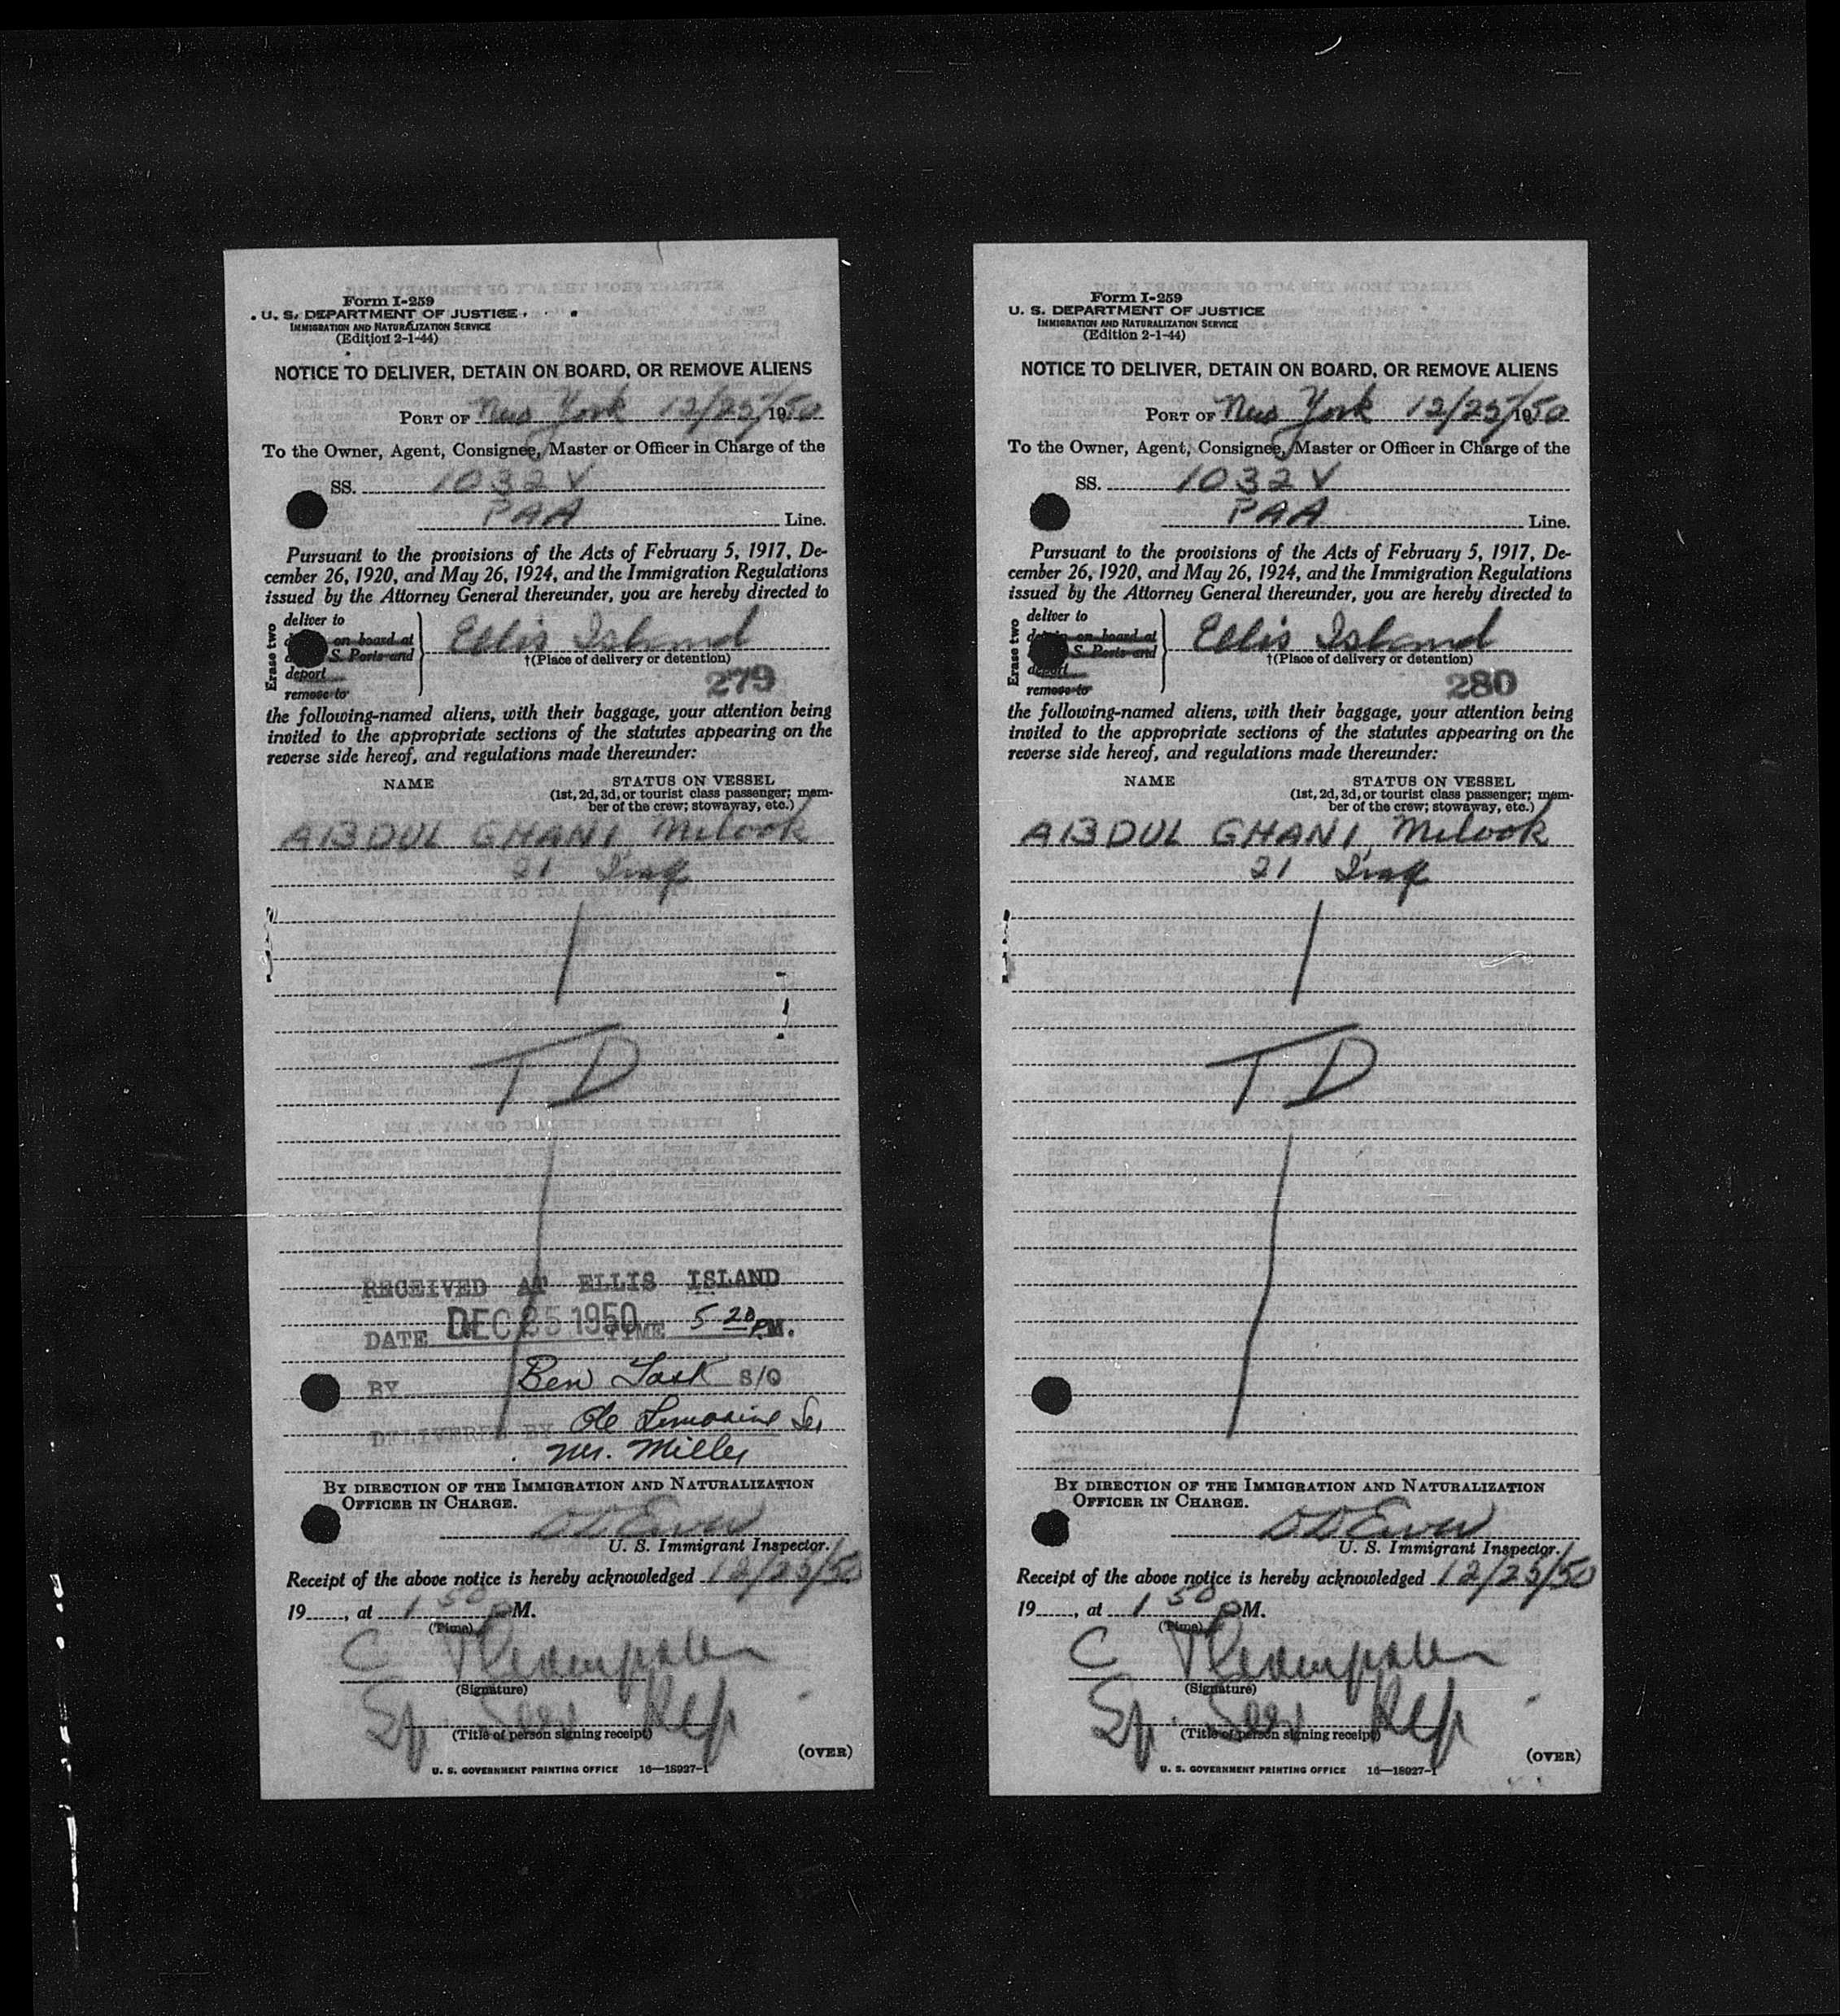 Form I-259
U. S. DEPARTMENT OF JUSTICE
IMMIGRATION AND NATURALIZATION SERVICE
(Edition 2-1-44)
NOTICE TO DELIVER, DETAIN ON BOARD, OR REMOVE ALIENS
PORT OF New York 12/25/1950
To the Owner, Agent, Consignee, Master or Officer in Charge of the
SS. 1032 Y
PAA Line.
Pursuant to the provisions of the Acts of February 5, 1917, De-
cember 26, 1920, and May 26, 1924, and the Immigration Regulations
issued by the Attorney General thereunder, you are hereby directed to
Erase two
deliver to
on board at
S. Ports and
deport
remove to
Ellis Island
†(Place of delivery or detention)
279
the following-named aliens, with their baggage, your attention being
invited to the appropriate sections of the statutes appearing on the
reverse side hereof, and regulations made thereunder:
NAME STATUS ON VESSEL
(1st, 2d, 3d, or tourist class passenger; mem-
ber of the crew; stowaway, etc.)
ABDUL GHANI, Melook
21 Iraq
TD
RECEIVED AT ELLIS ISLAND
DATE DEC 25 1950 TIME 5 20 P.M.
BY Ben Task S/O
DELIVERED BY Limosine
Mr. Miller
BY DIRECTION OF THE IMMIGRATION AND NATURALIZATION
OFFICER IN CHARGE.
U. S. Immigrant Inspector.
Receipt of the above notice is hereby acknowledged 12/25/50
19, at 1 50 PM.
(Time)
C Thompson
(Signature)
Sp. Serv Rep
(Title of person signing receipt)
(OVER)
U. S. GOVERNMENT PRINTING OFFICE 16—18927-1
Form I-259
U. S. DEPARTMENT OF JUSTICE
IMMIGRATION AND NATURALIZATION SERVICE
(Edition 2-1-44)
NOTICE TO DELIVER, DETAIN ON BOARD, OR REMOVE ALIENS
PORT OF New York 12/25/1950
To the Owner, Agent, Consignee, Master or Officer in Charge of the
SS. 1032 Y
PAA Line.
Pursuant to the provisions of the Acts of February 5, 1917, De-
cember 26, 1920, and May 26, 1924, and the Immigration Regulations
issued by the Attorney General thereunder, you are hereby directed to
Erase two
deliver to
on board at
S. Ports and
deport
remove to
Ellis Island
†(Place of delivery or detention)
280
the following-named aliens, with their baggage, your attention being
invited to the appropriate sections of the statutes appearing on the
reverse side hereof, and regulations made thereunder:
NAME STATUS ON VESSEL
(1st, 2d, 3d, or tourist class passenger; mem-
ber of the crew; stowaway, etc.)
ABDUL GHANI, Melook
21 Iraq
TD
BY DIRECTION OF THE IMMIGRATION AND NATURALIZATION
OFFICER IN CHARGE.
U. S. Immigrant Inspector.
Receipt of the above notice is hereby acknowledged 12/25/50
19, at 1 50 PM.
(Time)
C Thompson
(Signature)
Sp. Serv Rep
(Title of person signing receipt)
(OVER)
U. S. GOVERNMENT PRINTING OFFICE 16—18927-1